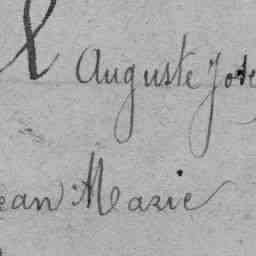 & Auguste Jose
ean Marie